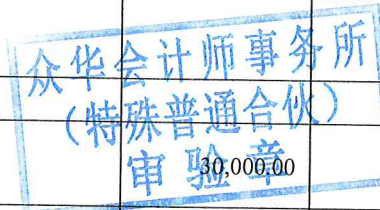 众华会计师事务所
（特殊普通合伙）
审验章
30,000.00